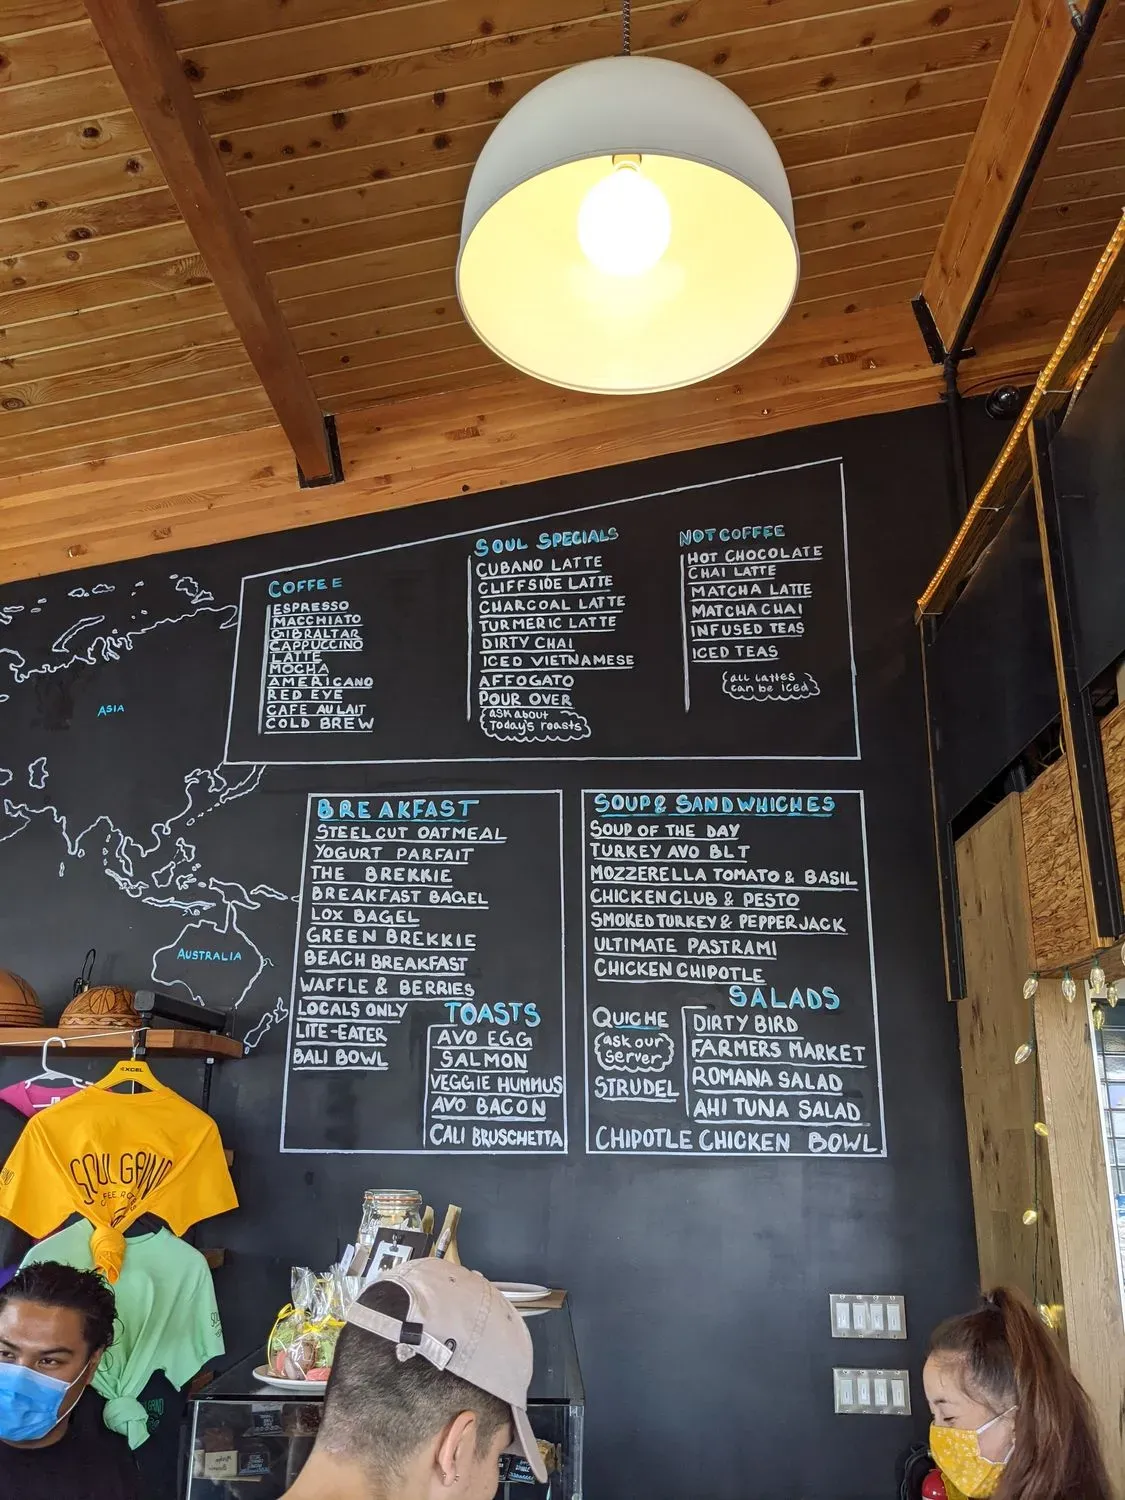 COFFEE
ESPRESSO
MACCHIATO
GIBRALTAR
CAPPUCCINO
LATTE
MOCHA
AMERICANO
RED EYE
CAFE AU LAIT
COLD BREW
SOUL SPECIALS
CUBANO LATTE
CLIFFSIDE LATTE
CHARCOAL LATTE
TURMERIC LATTE
DIRTY CHAI
ICED VIETNAMESE
AFFOGATO
POUR OVER
ASK about
Today's roasts
NOT COFFEE
HOT CHOCOLATE
CHAI LATTE
MATCHA LATTE
MATCHA CHAI
INFUSED TEAS
ICED TEAS
all Lattes
can be iced
ASIA
AUSTRALIA
BREAKFAST
STEEL CUT OATMEAL
YOGURT PARFAIT
THE BREKKIE
BREAKFAST BAGEL
LOX BAGEL
GREEN BREKKIE
BEACH BREAKFAST
WAFFLE & BERRIES
LOCALS ONLY
LITE-EATER
BALI BOWL
TOASTS
AVO EGG
SALMON
VEGGIE HUMMUS
AVO BACON
CALI BRUSCHETTA
SOUP & SANDWHICHES
SOUP OF THE DAY
TURKEY AVO BLT
MOZZERELLA TOMATO & BASIL
CHICKEN CLUB & PESTO
SMOKED TURKEY & PEPPER JACK
ULTIMATE PASTRAMI
CHICKEN CHIPOTLE
QUICHE
ask our
server
STRUDEL
SALADS
DIRTY BIRD
FARMERS MARKET
ROMANA SALAD
AHI TUNA SALAD
CHIPOTLE CHICKEN BOWL
EXCEL
SOUL GRIND